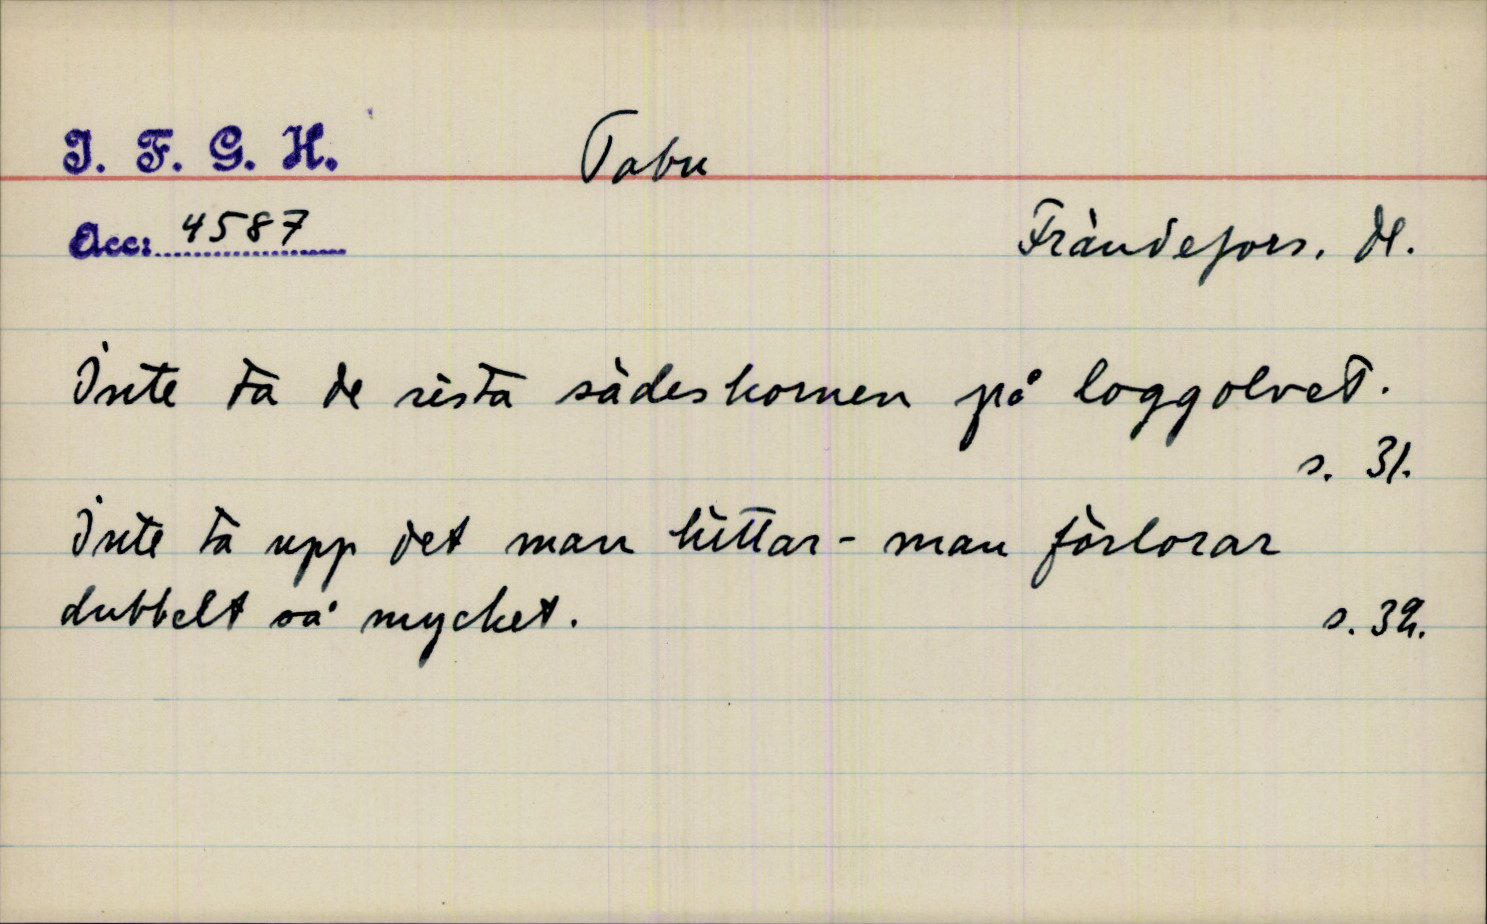 I. F. G. H.
Tabu
Acc: 4587
Frändefors. Dl.
Inte ta de sista sädeskornen på loggolvet.
s. 31.
Inte ta upp det man hittar - man förlorar
dubbelt så mycket.
s. 32.